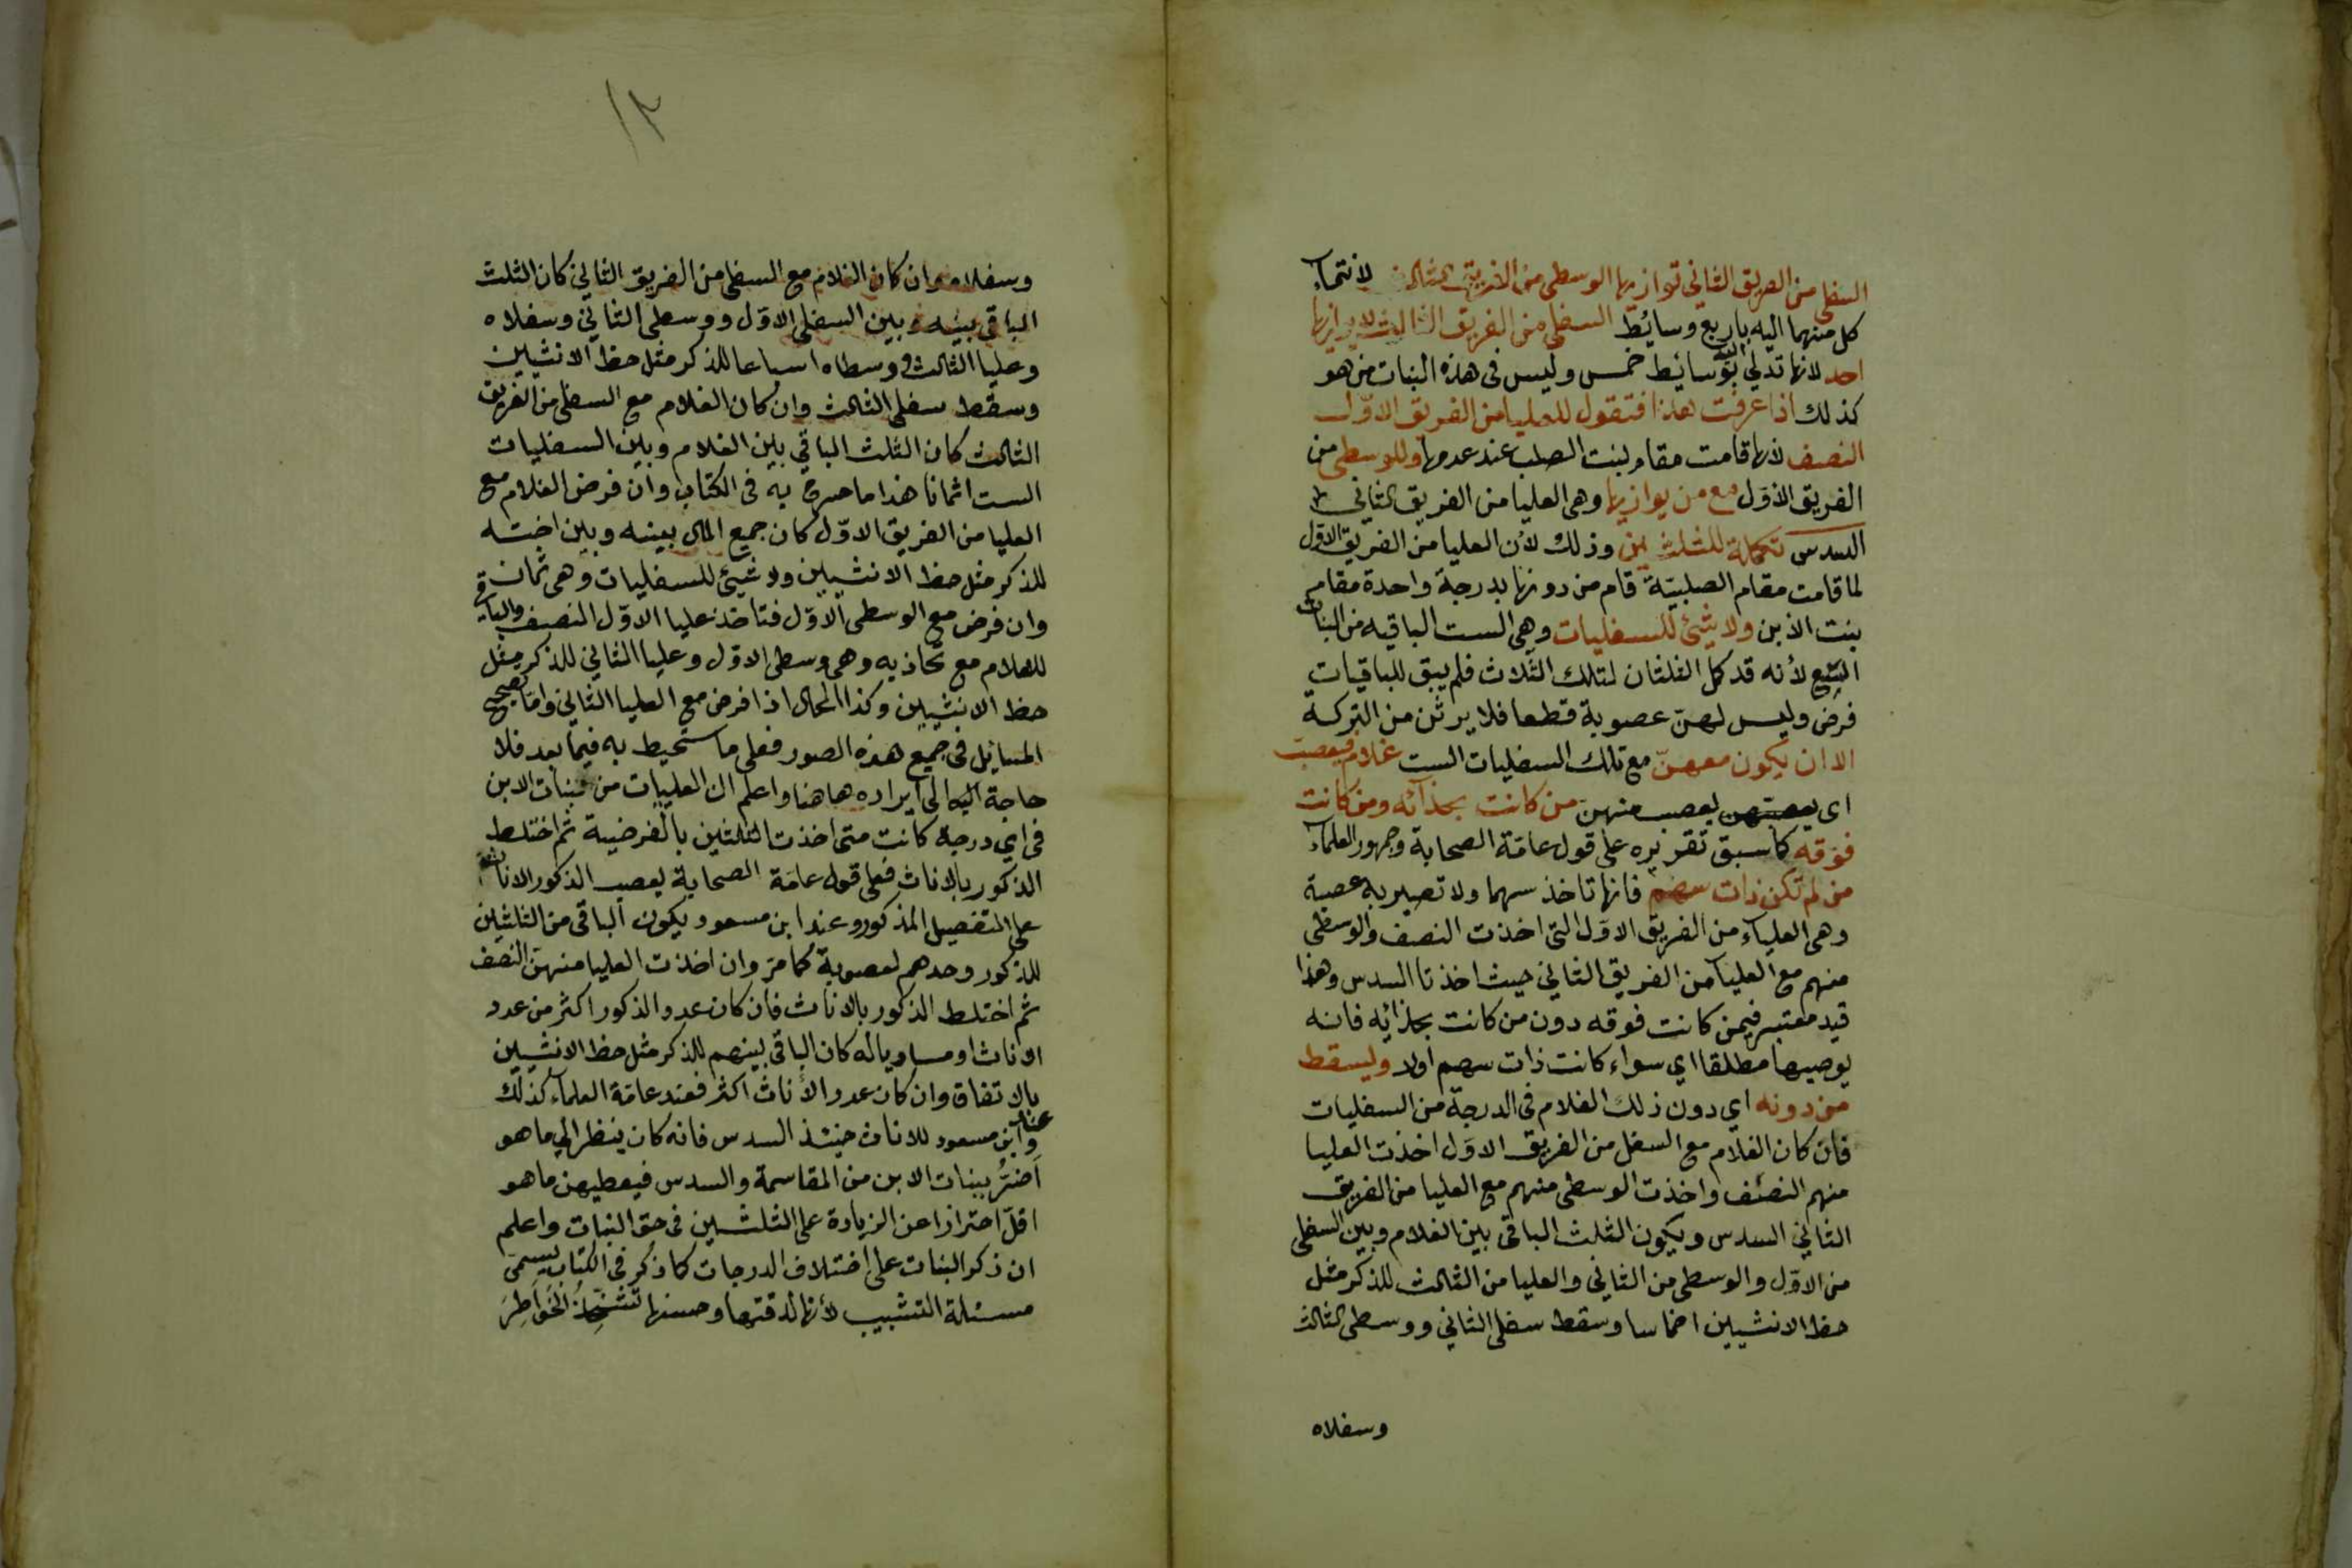 السفلى من الفريق الثاني توازيها الوسطى من الفريق الثالث لانتماء
كل منهما اليه باربع وسائط السفلى من الفريق الثالث لا يوازيها
احد لانها تدلي اليه بوسائط خمس وليس في هذه البنات من هو
كذلك اذا عرفت هذا فتقول للعليا من الفريق الاوّل
النصف لانها قامت مقام لبنت الصلب عند عدمها وللوسطى من
الفريق الاوّل مع من يوازيها وهى العليا من الفريق الثاني
السدس تكملة للثلثين وذلك لأن العليا من الفريق الاول
لما قامت مقام الصلبيّة قام من دونها بدرجة واحدة مقام
بنت الابن ولا شئ للسفليات وهى الست الباقيه من البنات
التسع لأنه قد كمل الثلثان لتلك الثلاث فلم يبق للباقيات
فرض وليس لهنّ عصوبة قطعا فلا يرثن من التركة
الا ان يكون معهنّ مع تلك السفليات الست غلام فيعصب
اى يعصبهن يعصب منهنّ من كانت بحذائه ومن كانت
فوقه كما سبق تقريره على قول عامّة الصحابة وجمهور العلماء
من لم تكن ذات سهم فانها تاخذ سهما ولا تصير به عصبة
وهى العلياء من الفريق الاوّل التى اخذت النصف والوسطى
منهم مع العليا من الفريق الثاني حيث اخذتا السدس وهذا
قيد معتبر فيمن كانت فوقه دون من كانت بحذائه فانه
يوصيها مطلقا اي سواء كانت ذات سهم اولا ويسقط
من دونه اي دون ذلك الغلام فى الدرجة من السفليات
فان كان الغلام مع السفلى من الفريق الاوّل اخذت العليا
منهم النصف واخذت الوسطى منهم مع العليا من الفريق
الثاني السدس ويكون الثلث الباقى بين الغلام وبين السفلى
من الاوّل والوسطى من الثاني والعليا من الثالث للذكر مثل
حظ الانثيين اخماسا وسقط سفلى الثاني ووسطى الثالث
وسفلاه
١٢
وسفلاه وان كان الغلام مع السفلى من الفريق الثاني كان الثلث
الباقي بينه وبين السفلى الاوّل ووسطى الثاني وسفلاه
وعليا الثالث ووسطاه اسباعا للذكر مثل حظ الانثيين
وسقط سفلى الثالث وان كان الغلام مع السفلى من الفريق
الثالث كان الثلث الباقي بين الغلام وبين السفليات
الست اثمانا هذا ما صرح به فى الكتاب وان فرض الغلام مع
العليا من الفريق الاوّل كان جميع المال بينه وبين اخته
للذكر مثل حظ الانثيين ولا شيئ للسفليات وهى ثمان
وان فرض مع الوسطى الاوّل فتاخذ عليا الاوّل النصف والباقي
للغلام مع تحاذيه وهى وسطى الاوّل وعليا الثاني للذكر مثل
حظ الانثيين وكذا الحال اذا فرض مع العليا الثاني وامّا تصحيح
المسايل فى جميع هذه الصور فعلى ما ستحيط به فيما بعد فلا
حاجة اليه الى ايراده هاهنا واعلم ان العليات من بنات الابن
فى اي درجة كانت متى اخذت الثلثين بالفرضية ثم اختلط
الذكور بالاناث فعلى قول عامّة الصحابة يعصب الذكور الاناث
على التفصيل المذكور وعند ابن مسعود يكون الباقى من الثلثين
للذكور وحدهم لعصوبة كما مرّ وان اخذت العليا منهنّ النصف
ثم اختلط الذكور بالاناث فان كان عدد الذكور اكثر من عدد
الاناث او مساويا له كان الباقى بينهم للذكر مثل حظ الانثيين
بالاتفاق وان كان عدد الأناث اكثر فعند عامّة العلماء كذلك
وعند ابن مسعود للاناث حينئذ السدس فانه كان ينظر الي ما هو
اَضرُّ ببنات الابن من المقاسمة والسدس فيعطيهن ما هو
اقلّ احترازا عن الزيادة على الثلثين فى حق البنات واعلم
ان ذكر البنات على اختلاف الدرجات كما ذكر فى الكتاب يسمى
مسئلة التشبيب لأنها لدقتها وحسنها تشحذُ الخواطِرَ